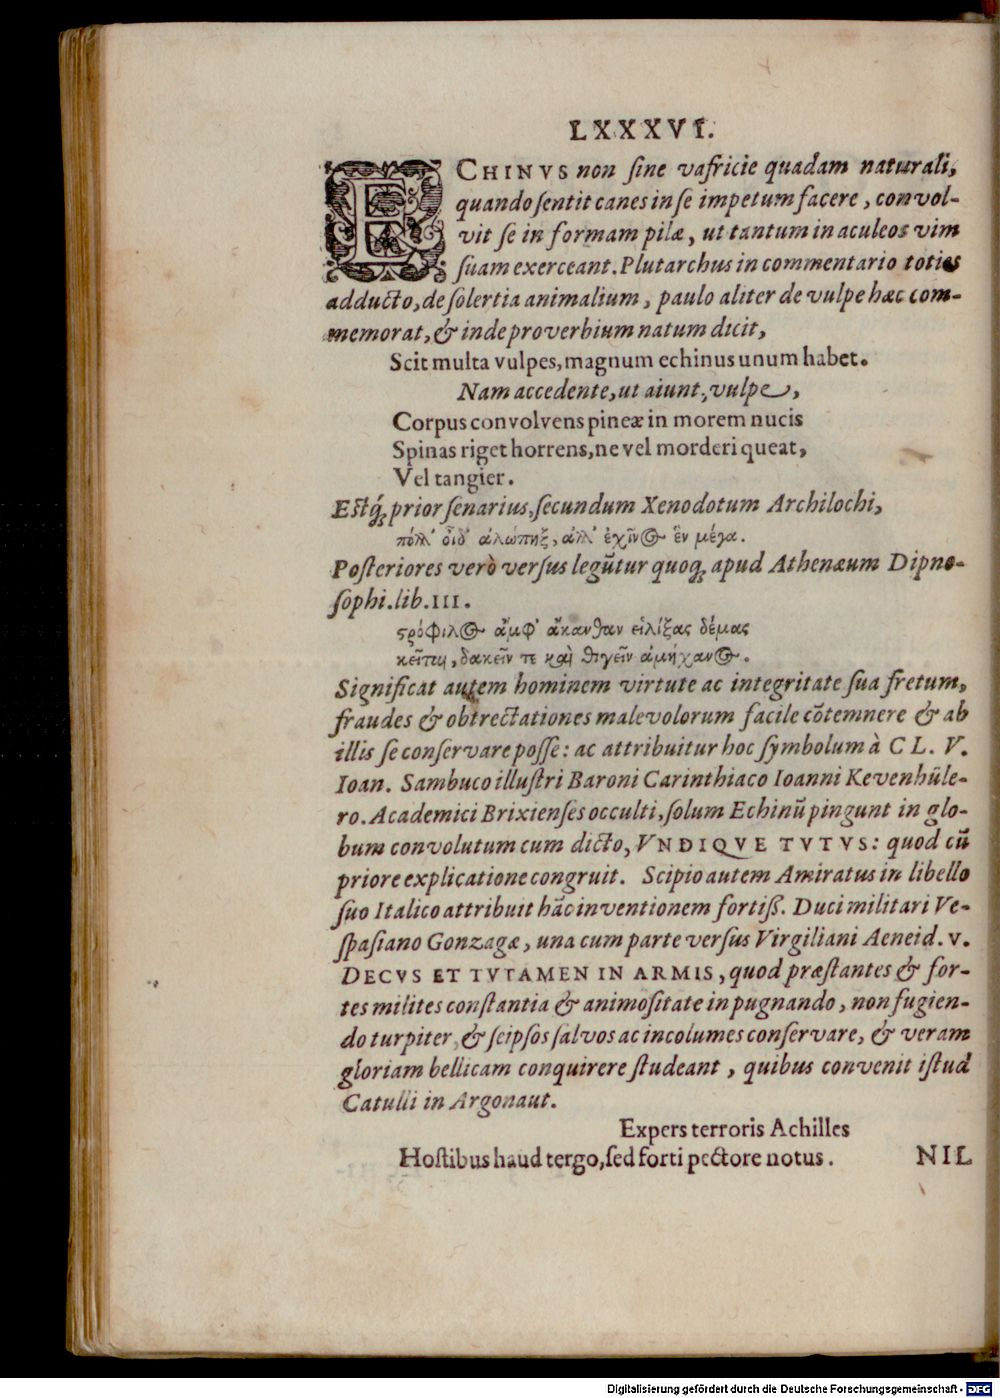 LXXXVI.
ECHINVS non ſine vafricie quadam naturali,
quando ſentit canes in ſe impetum facere, convol-
vit ſe in formam pilæ, ut tantum in aculeos vim
ſuam exerceant. Plutarchus in commentario toties
adducto, de ſolertia animalium, paulo aliter de vulpe hæc com-
memorat, & inde proverbium natum dicit,
Scit multa vulpes, magnum echinus unum habet.
Nam accedente, ut aiunt, vulpe,
Corpus convolvens pineæ in morem nucis
Spinas riget horrens, ne vel morderi queat,
Vel tangier.
Estq́ꝫ prior ſenarius, ſecundum Xenodotum Archilochi,
πόλλ' οἶδ' ἀλώπηξ, ἀλλ' ἐχῖνος ἓν μέγα.
Poſteriores verò verſus legũtur quoqꝫ apud Athenæum Dipno-
ſophi. lib. III.
ϛρόφιλος ἀμφ' ἄκανθαν εἱλίξας δέμας
κεῖται, δακεῖν τε καὶ θιγεῖν ἀμήχανος.
Significat autem hominem virtute ac integritate ſua fretum,
fraudes & obtrectationes malevolorum facile cõtemnere & ab
illis ſe conſervare poſſe: ac attribuitur hoc ſymbolum à CL. V.
Ioan. Sambuco illuſtri Baroni Carinthiaco Ioanni Kevenhüle-
ro. Academici Brixienſes occulti, ſolum Echinũ pingunt in glo-
bum convolutum cum dicto, VNDIQVE TVTVS: quod cũ
priore explicatione congruit. Scipio autem Amiratus in libello
ſuo Italico attribuit hãc inventionem fortiß. Duci militari Ve-
ſpaſiano Gonzagæ, una cum parte verſus Virgiliani Aeneid. v.
DECVS ET TVTAMEN IN ARMIS, quod præſtantes & for-
tes milites conſtantia & animoſitate in pugnando, non fugien-
do turpiter, & ſeipſos ſalvos ac incolumes conſervare, & veram
gloriam bellicam conquirere ſtudeant, quibus convenit iſtud
Catulli in Argonaut.
Expers terroris Achilles
Hoſtibus haud tergo, ſed forti pectore notus.
NIL
Digitalisierung gefördert durch die Deutsche Forschungsgemeinschaft - DFG